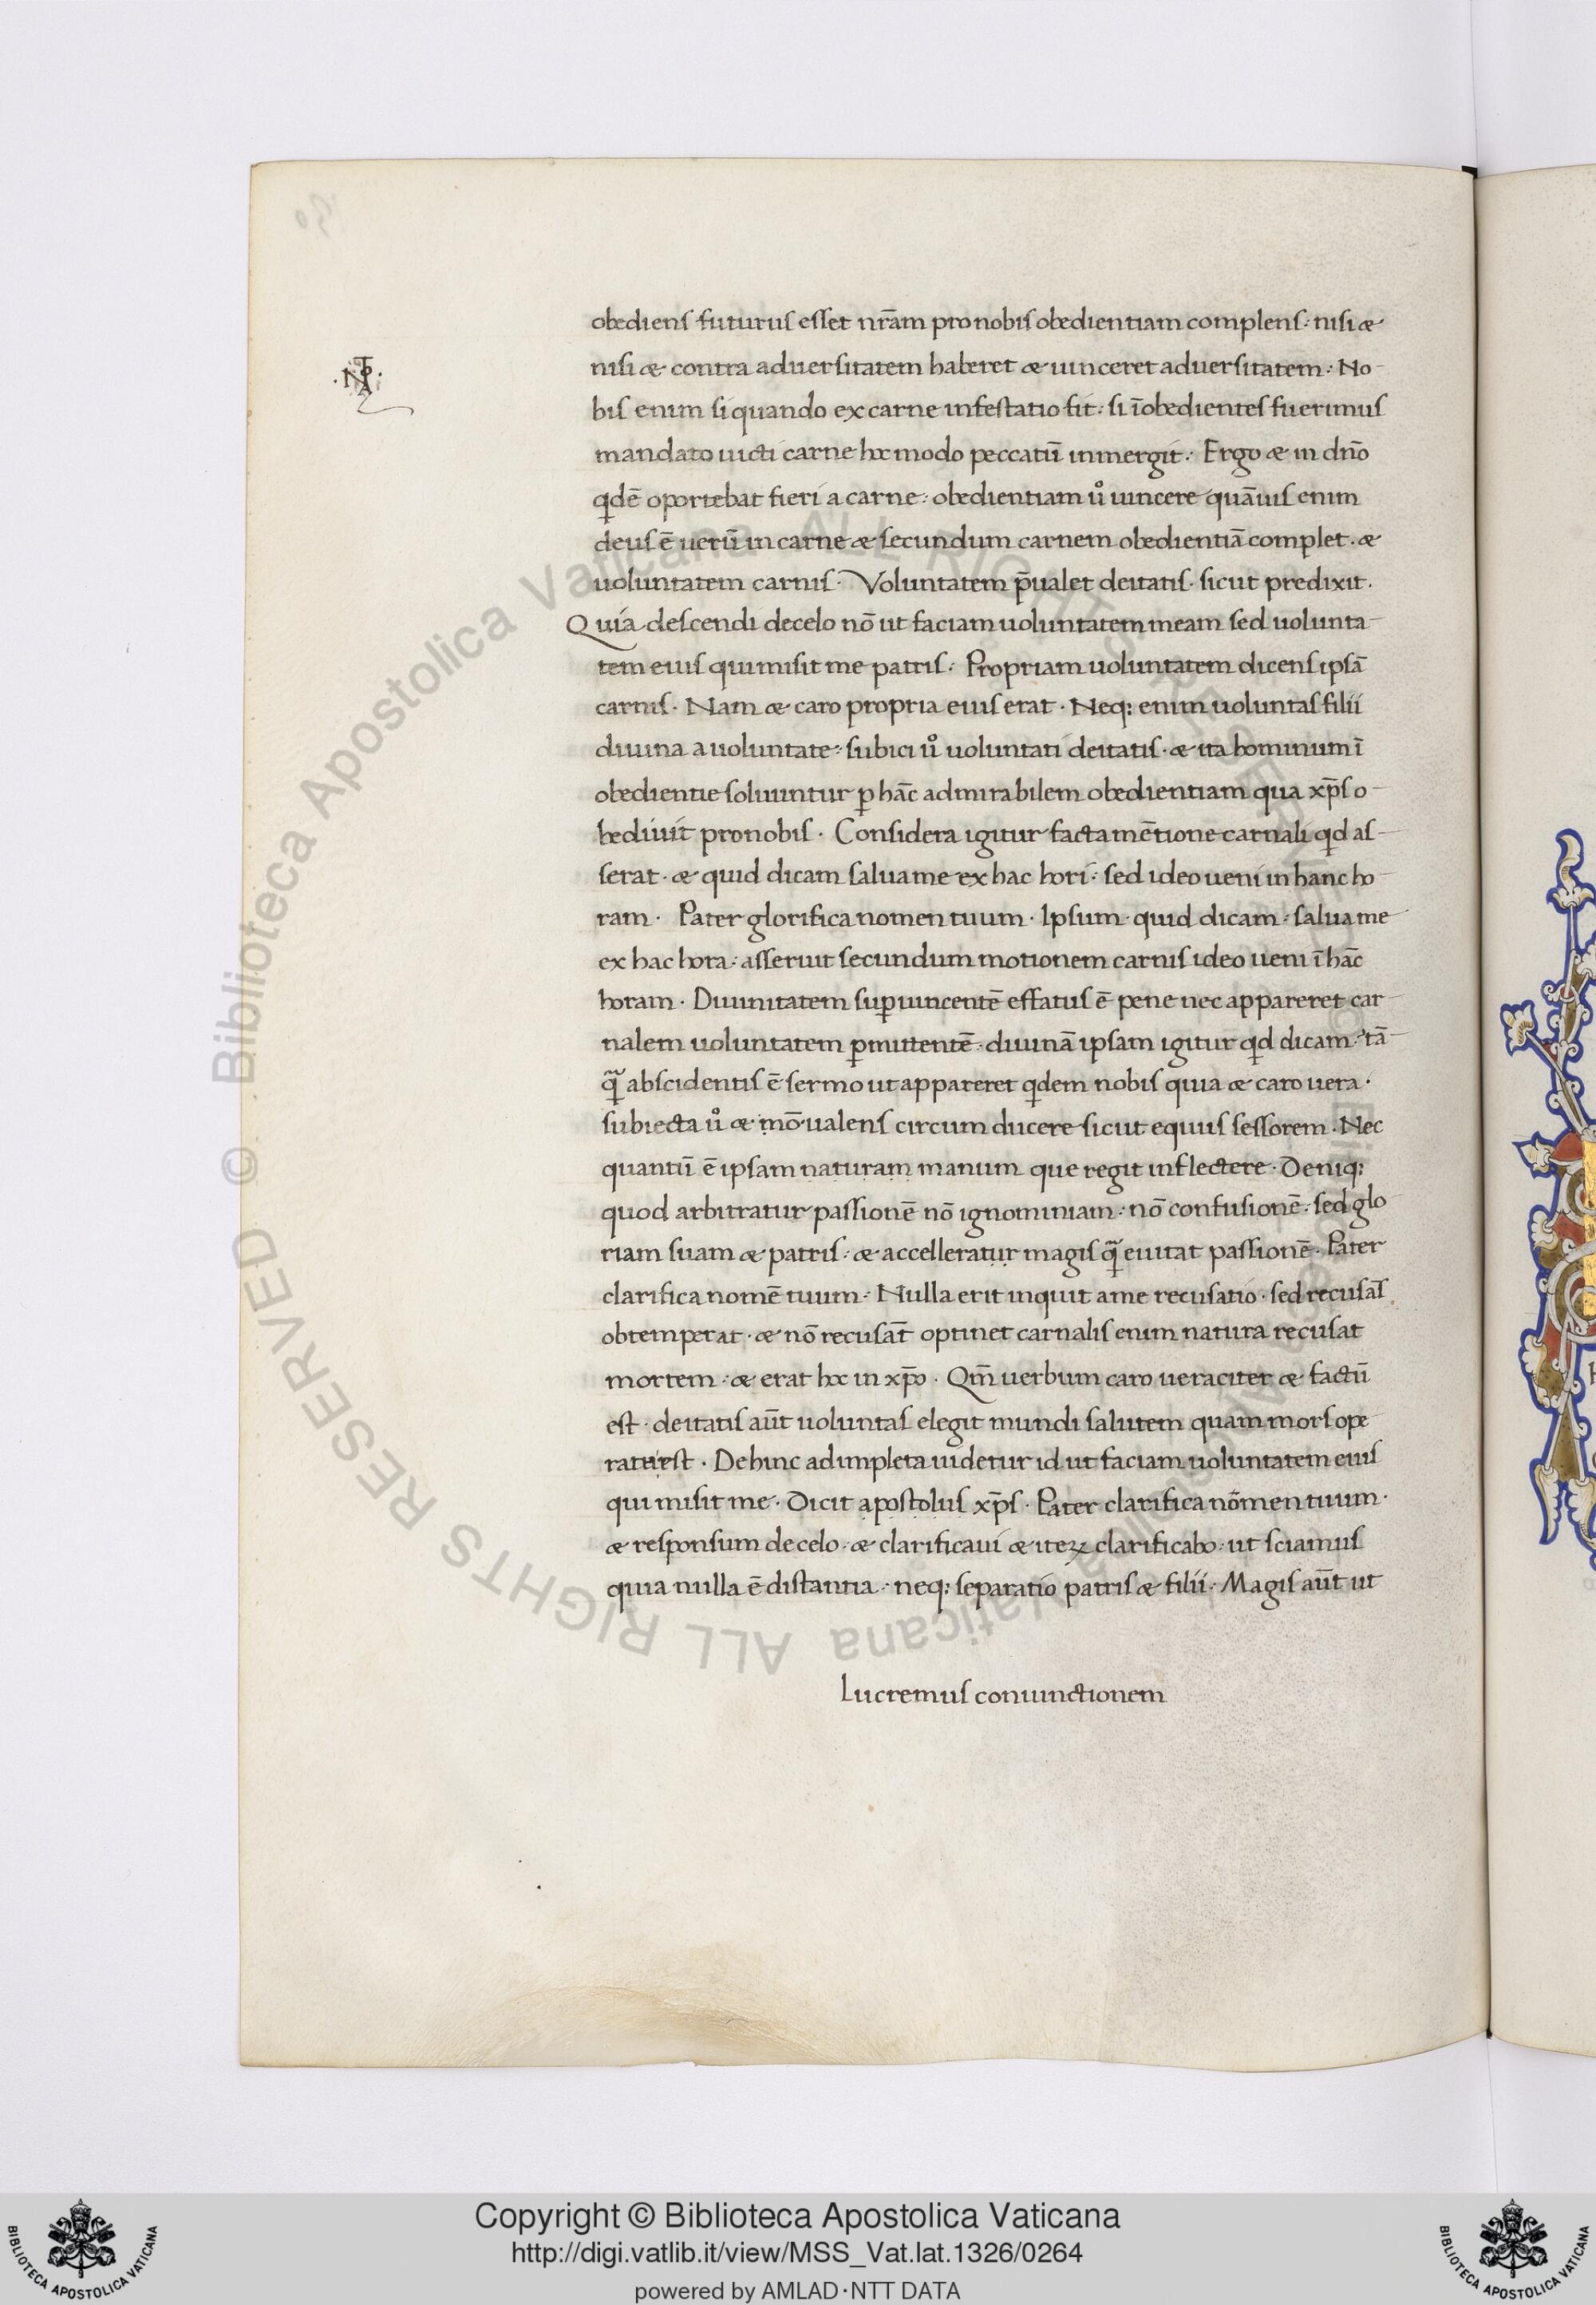 obediens futurus esset nr̄am pro nobis obedientiam complens: nisi æ
·NOTA·
nisi æ contra aduersitatem haberet æ uinceret aduersitatem: No-
bis enim si quando ex carne infestatio fit: si īobedientes fuerimus
mandato uicti carne hoc modo peccatū inmergit: Ergo æ in dn̄o
qdē oportebat fieri a carne: obedientiam uͦ uincere quāuis enim
deus ē uerū in carne æ secundum carnem obedientiā complet. æ
uoluntatem carnis. Voluntatem p̄ualet deitatis. sicut predixit.
Quia descendi de celo nō ut faciam uoluntatem meam sed uolunta-
tem eius qui misit me patris: Propriam uoluntatem dicens ipsā
carnis. Nam æ caro propria eius erat. Neq; enim uoluntas filii
diuina a uoluntate: subici uͦ uoluntati deitatis. æ ita hominum ī
obedientie soluuntur ꝑ hāc admirabilem obedientiam qua xp̄s o-
bediuit pro nobis. Considera igitur facta mētione carnali qd as-
serat. æ quid dicam salua me ex hac hori: sed ideo ueni in hanc ho-
ram. Pater glorifica nomen tuum. Ipsum. quid dicam. salua me
ex hac hora: asseruit secundum motionem carnis ideo ueni ī hāc
horam. Diuinitatem suꝑuincentē effatus ē pene nec appareret car-
nalem uoluntatem ꝑmittentē. diuinā ipsam igitur qd dicam: tā-
q̄ abscidentis ē sermo ut appareret qdem nobis quia æ caro uera.
subiecta uͦ æ mō ualens circum ducere sicut equus sessorem. Nec
quantū ē ipsam naturam manum que regit inflectere. Deniq;
quod arbitratur passionē nō ignominiam: nō confusionē: sed glo
riam suam æ patris: æ accelleratur magis q̄ euitat passionē. Pater
clarifica nomē tuum: Nulla erit inquit a me recusatio. sed recusās
obtemperat. æ nō recusāt optinet carnalis enim natura recusat
mortem: æ erat hoc in xp̄o. Qm̄ uerbum caro ueraciter æ factū
est. deitatis aūt uoluntas elegit mundi salutem quam mors ope
ratur est. Dehinc adimpleta uidetur id ut faciam uoluntatem eius
qui misit me. Dicit apostolus xp̄s. Pater clarifica nomen tuum.
æ responsum de celo. æ clarificaui æ iteꝝ clarificabo. ut sciamus
quia nulla ē distantia: neq; separatio patris æ filii. Magis aūt ut
Lucremus coniunctionem
© Biblioteca Apostolica Vaticana ALL RIGHTS RESERVED
Copyright © Biblioteca Apostolica Vaticana
http://digi.vatlib.it/view/MSS_Vat.lat.1326/0264
powered by AMLAD·NTT DATA
BIBLIOTECA APOSTOLICA VATICANA
BIBLIOTECA APOSTOLICA VATICANA